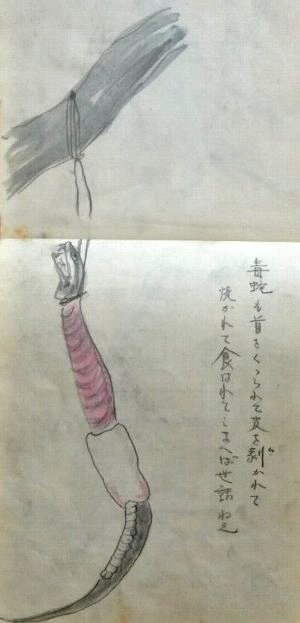 毒蛇も首をくゝられて皮を剥がれて
焼かれて食はれてしまへば世話ねえ